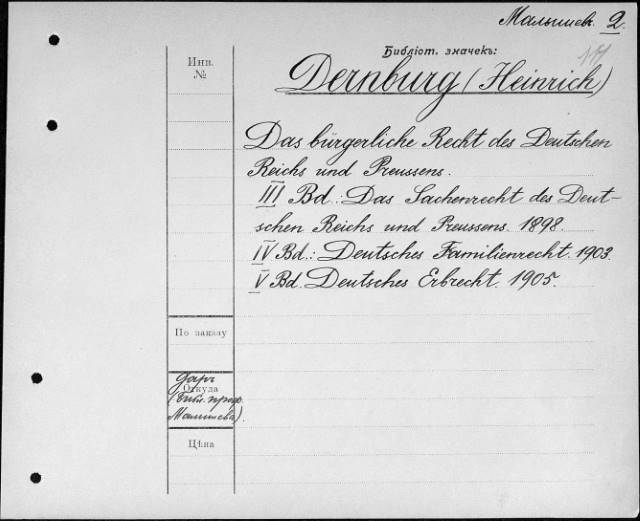 Малышев. 2.
Библіот. значекъ:
Инв.
№
Dernburg (Heinrich)
Das bürgerliche Recht des Deutschen
Reichs und Preussens.
III Bd.: Das Sachenrecht des Deut-
schen Reichs und Preussens. 1898.
IV Bd.: Deutsches Familienrecht. 1903.
V Bd. Deutsches Erbrecht. 1905.
По заказу
Даръ
Откуда
(библ. проф.
Малышева).
Цѣна